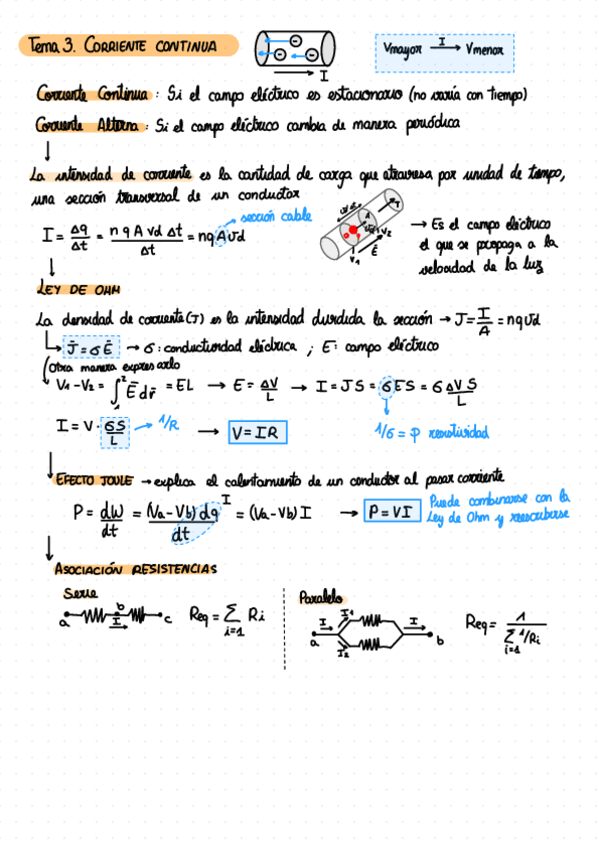 Tema 3. CORRIENTE CONTINUA
I
Vmayor I→ Vmenor
Corriente Continua: Si el campo eléctrico es estacionario (no varía con tiempo)
Corriente Alterna: Si el campo eléctrico cambia de manera periódica
La intensidad de corriente es la cantidad de carga que atraviesa por unidad de tiempo,
una sección transversal de un conductor
sección cable
I = Δq/Δt = n q A vd Δt/Δt = nqAvd
→ Es el campo eléctrico
el que se propaga a la
velocidad de la luz
LEY DE OHM
La densidad de corriente (J) es la intensidad dividida la sección → J = I/A = nqvd
J̄ = σĒ → σ: conductividad eléctrica ; E: campo eléctrico
(Otra manera expresarlo
V1 - V2 = ∫₁² Ē dr̄ = EL → E = ΔV/L → I = JS = σES = σ ΔV S/L
I = V · σS/L → 1/R → V = IR
1/σ = ρ resistividad
EFECTO JOULE → explica el calentamiento de un conductor al pasar corriente
P = dW/dt = (Va-Vb) dq/dt I = (Va-Vb) I → P = VI
Puede combinarse con la
Ley de Ohm y reescribirse
ASOCIACIÓN RESISTENCIAS
Serie
a b c I
Req = Σ i=1 Ri
Paralelo
I I1 I2 I a b
Req = 1/Σ i=1 1/Ri